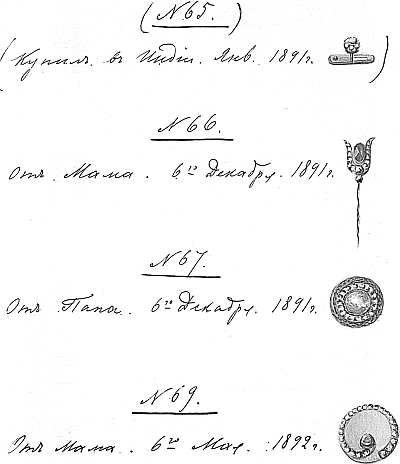 (N 65.)
(Купил. въ Индіи. Янв. 1891г.)
N 66.
Отъ Мама. 6го Декабря. 1891г.
N 67.
Отъ Папа. 6го Декабря. 1891г.
N 69.
Отъ Мама. 6го Мая. 1892г.